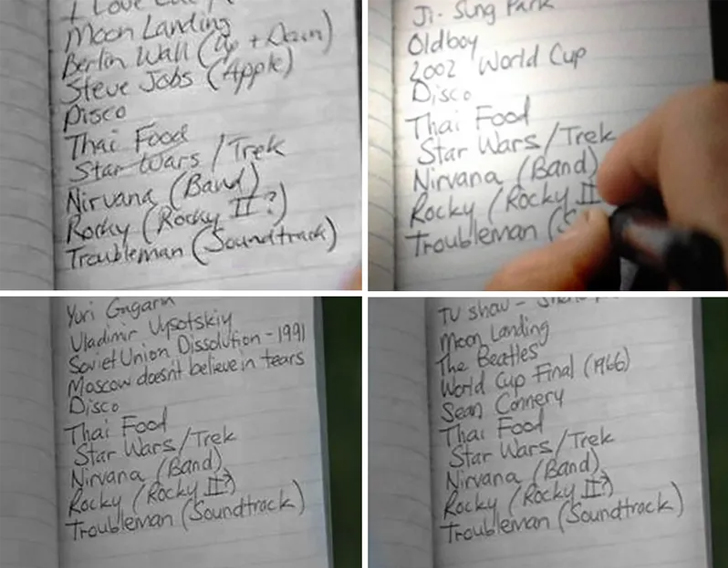 I Love Lucy
Moon Landing
Berlin Wall (Up + Down)
Steve Jobs (Apple)
Disco
Thai Food
Star Wars / Trek
Nirvana (Band)
Rocky (Rocky II?)
Troubleman (Soundtrack)
Ji-Sung Park
Oldboy
2002 World Cup
Disco
Thai Food
Star Wars / Trek
Nirvana (Band)
Rocky (Rocky II
Troubleman (S
Yuri Gagarin
Vladimir Vysotskiy
Soviet Union Dissolution - 1991
Moscow doesn't believe in tears
Disco
Thai Food
Star Wars / Trek
Nirvana (Band)
Rocky (Rocky II?)
Troubleman (Soundtrack)
TV show -
Moon Landing
The Beatles
World Cup Final (1966)
Sean Connery
Thai Food
Star Wars / Trek
Nirvana (Band)
Rocky (Rocky II?)
Troubleman (Soundtrack)